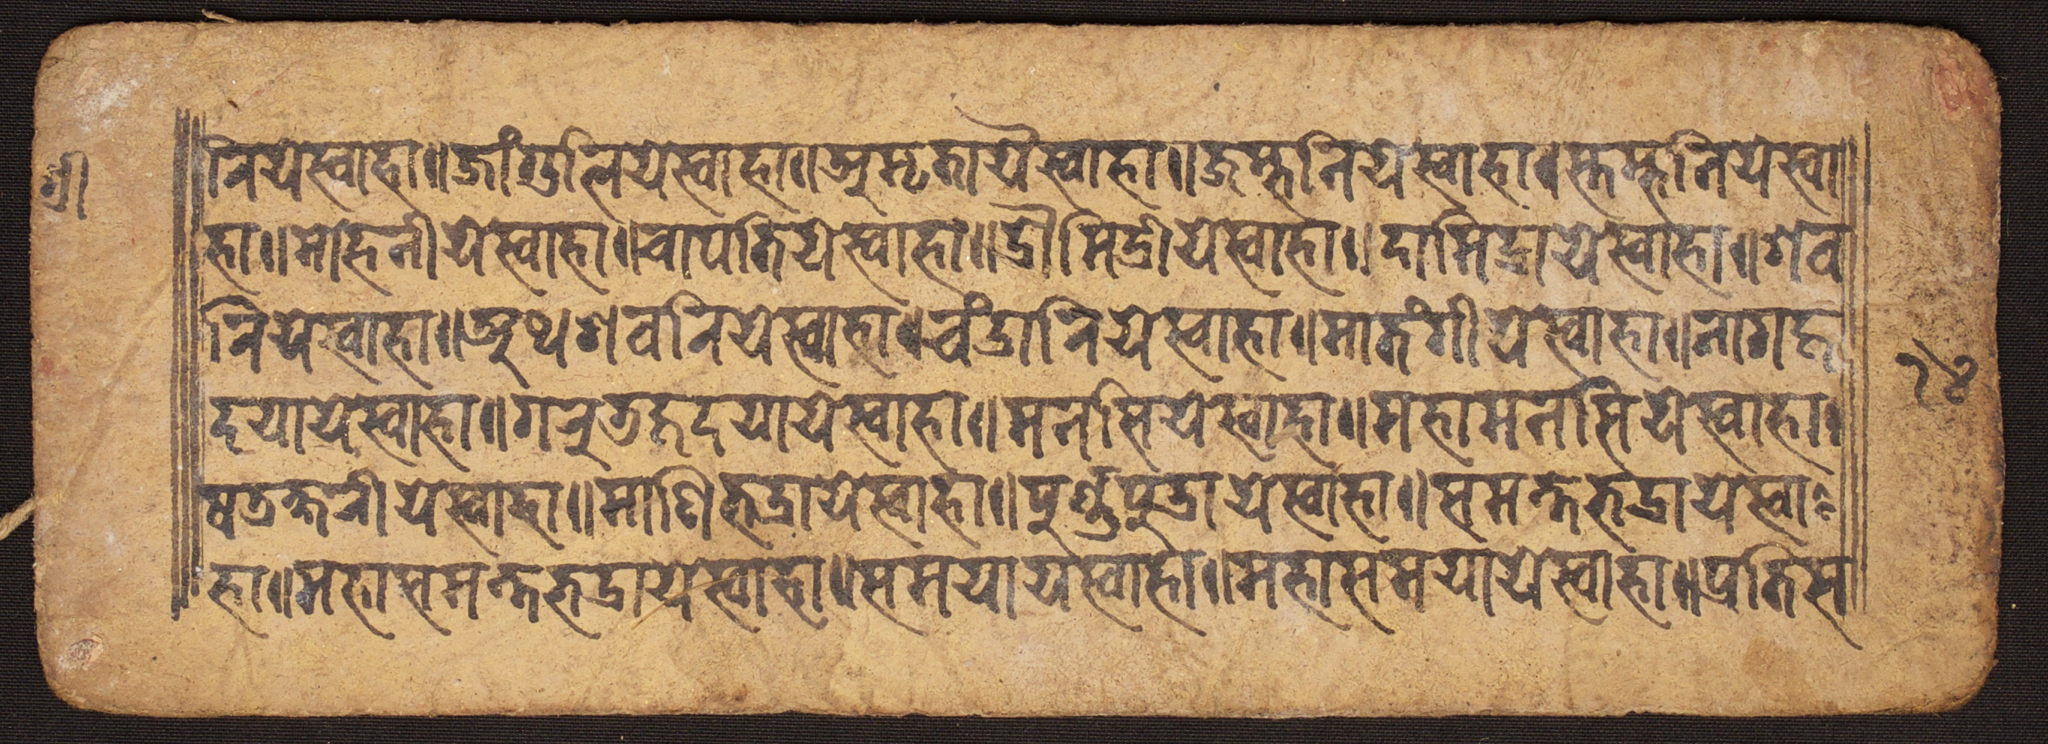 श्री
निये स्वाहा ॥ जांगुलिये स्वाहा ॥ अमृतायै स्वाहा ॥ जम्भनिये स्वाहा ॥ स्तम्भनिये स्वा
हा ॥ मोहनीये स्वाहा ॥ चापतिये स्वाहा ॥ द्रौमिद्रीये स्वाहा ॥ दामिद्राये स्वाहा ॥ शव
निये स्वाहा ॥ अथशवनिये स्वाहा ॥ चंद्रानिये स्वाहा ॥ मातंगीये स्वाहा ॥ नागहृ
दयाये स्वाहा ॥ गरुतहृदयाये स्वाहा ॥ मनसिये स्वाहा ॥ महामनसिये स्वाहा ॥
षतक्षरीये स्वाहा ॥ माणिभद्राये स्वाहा ॥ समन्तभद्राये स्वा
हा ॥ महासमन्तभद्राये स्वाहा ॥ समयाय स्वाहा ॥ महासमयाये स्वाहा ॥ प्रतिस